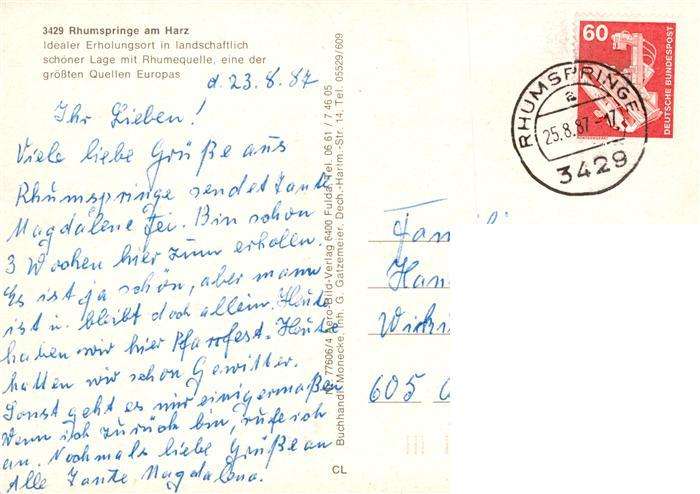 3429 Rhumspringe am Harz
Idealer Erholungsort in landschaftlich
schöner Lage mit Rhumequelle, eine der
größten Quellen Europas
d. 23.8.87
Ihr Lieben!
Viele liebe Grüße aus
Rhumspringe sendet Tante
Magdalene Fei. Bin schon
3 Wochen hier zum erhollen.
Es ist ja schön, aber mann
ist u. bleibt doch allein. Heute
haben wir hier Pfarrfest. Heute
hatten wir schon Gewitter.
Sonst geht es mir einigermaßen
Wenn ich zurück bin, rufe ich
an. Nochmals liebe Grüße an
Alle Tante Magdalena.
77606/4 Aero-Bild-Verlag 6400 Fulda, Tel. 06 61 / 7 46 05
Buchhandl. Monecke, Inh. G. Gatzemeier, Dech.-Hartm.-Str. 14, Tel. 05529/609
CL
60
DEUTSCHE BUNDESPOST
RHUMSPRINGE
a
25.8.87-17
3429
Fam
Han
605